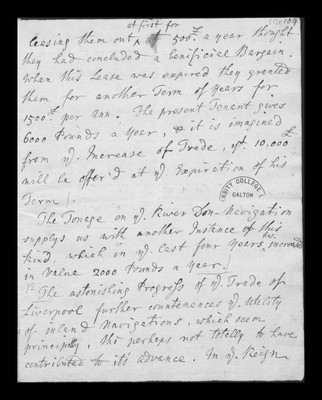 at first for
leasing them out ^ at 500£ a year thought
they had concluded a benificial Bargain.
When this Lease was expired they granted
them for another Term of Years for
1500£ per ann. The present Tenant gives
6000 Pounds a year, & it is imagined
from ye. Increase of Trade, yt. 10.000£
will be offer'd at ye. Expiration of his
Term.
TRINITY COLLEGE
GALTON
The Tonage on ye. River Don-Navigation
supplys us with another Instance of this
kind, which in ye. last four Years, has increased
in Value 2000 Pounds a year.
The astonishing Progress of ye. Trade of
Liverpool further countenances ye. Utility
of inland Navigations, which seem
principally, tho perhaps not totally to have
contributed to it's advance. In ye. Reign